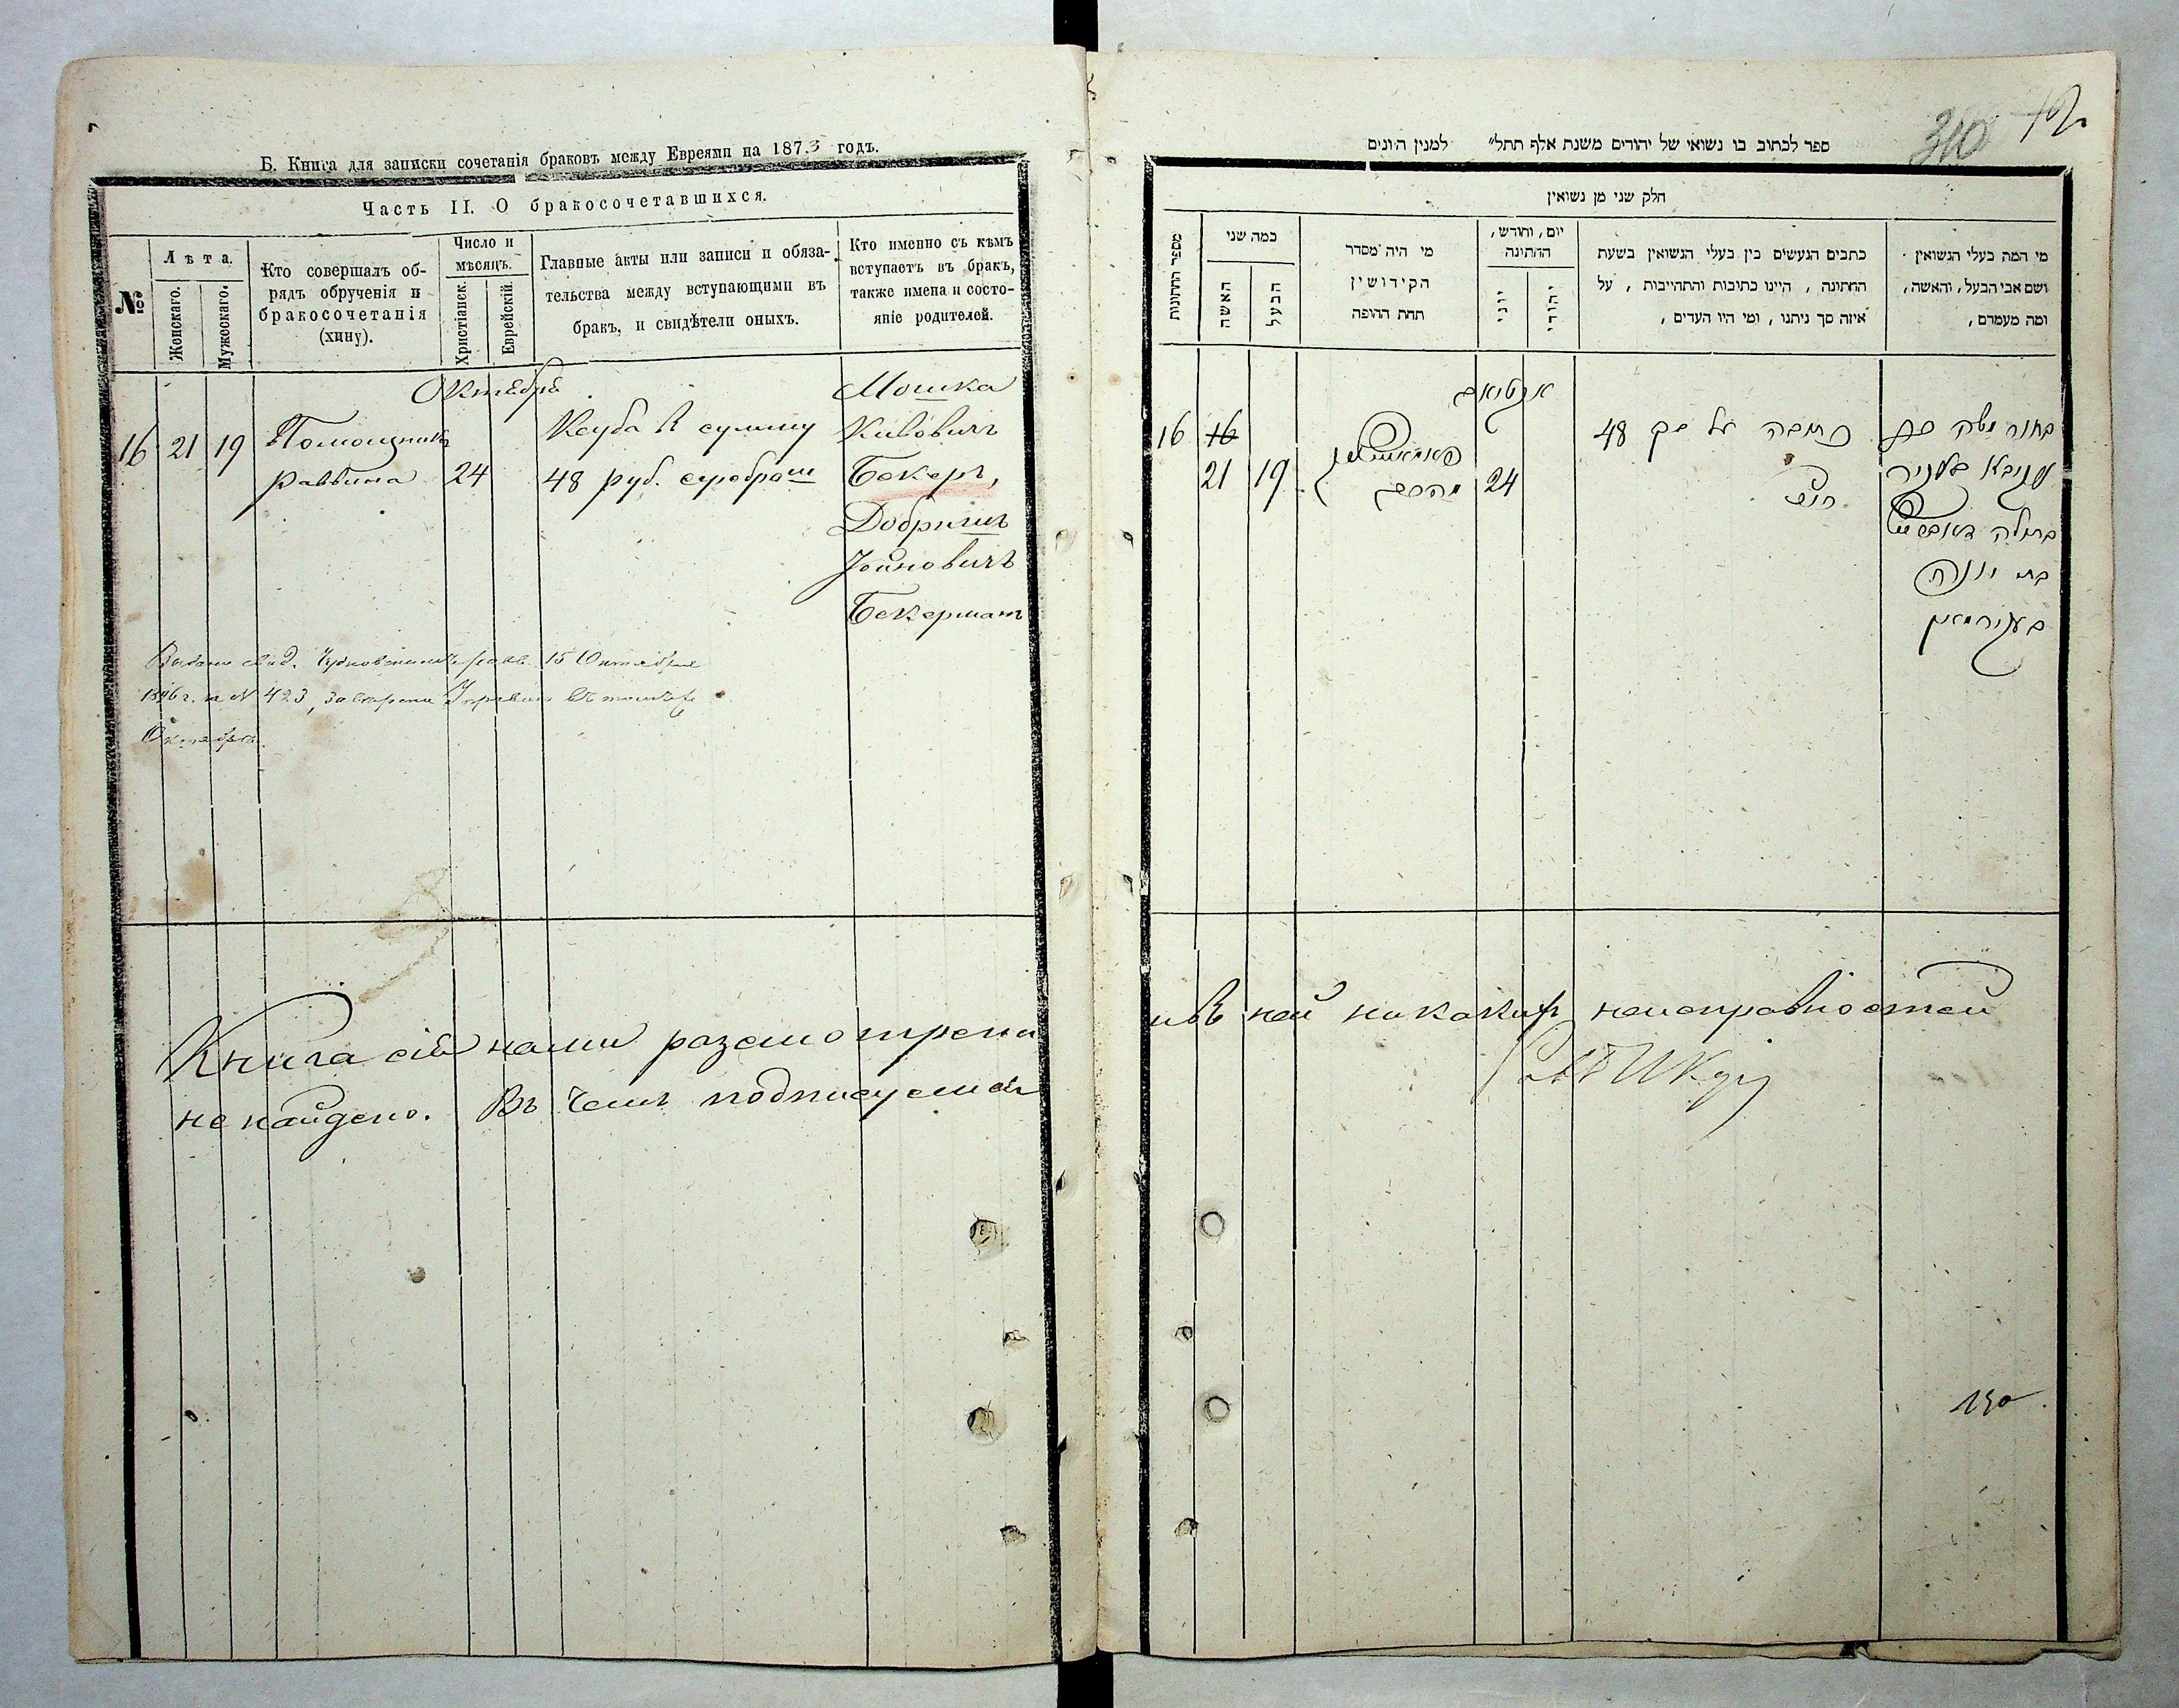 Б. Книга для записки сочетанія браковъ между Евреями на 1873 годъ.
Часть II. О бракосочетавшихся.
№
Лѣта.
Женскаго.
Мужескаго.
Кто совершалъ об-
рядъ обрученія и
бракосочетанія
(хину).
Число и
мѣсяцъ.
Христіанск.
Еврейскій.
Главные акты или записи и обяза-
тельства между вступающими въ
бракъ, и свидѣтели оныхъ.
Кто именно съ кѣмъ
вступаетъ въ бракъ,
также имена и состо-
яніе родителей.
Октября
16 21 19
Помощникъ
раввина
24
Ксуба в сумму
48 руб. серебром
Мошка
Кивовичъ
Бекеръ,
Добришъ
Іойновичъ
Бекерманъ
15 Октября
№ 423,
Октября.
Книга сія нами разсмотрена
не найдено. Въ чемъ подписуемся
ספר לכתוב בו נשואי של יהודים משנת אלף תתל״ למנין היונים
310
חלק שני מן נשואין
מספר החתונות
כמה שני
האשה
הבעל
מי היה מסדר
הקידושין
תחת החופה
יום, וחודש,
החתונה
יוני
יהודי
כתבים הנעשים בין בעלי הנשואין בשעת
החתונה, היינו כתיבות והתחייבות, על
איזה סך ניתנו, ומי היו העדים,
מי המה בעלי הנשואין
ושם אבי הבעל, והאשה,
ומה מעמדם,
16 16
21 19
24
כתובה על סך 48
בתולה
בת יונה
בעקירמאן
и въ ней никакихъ неисправностей
150